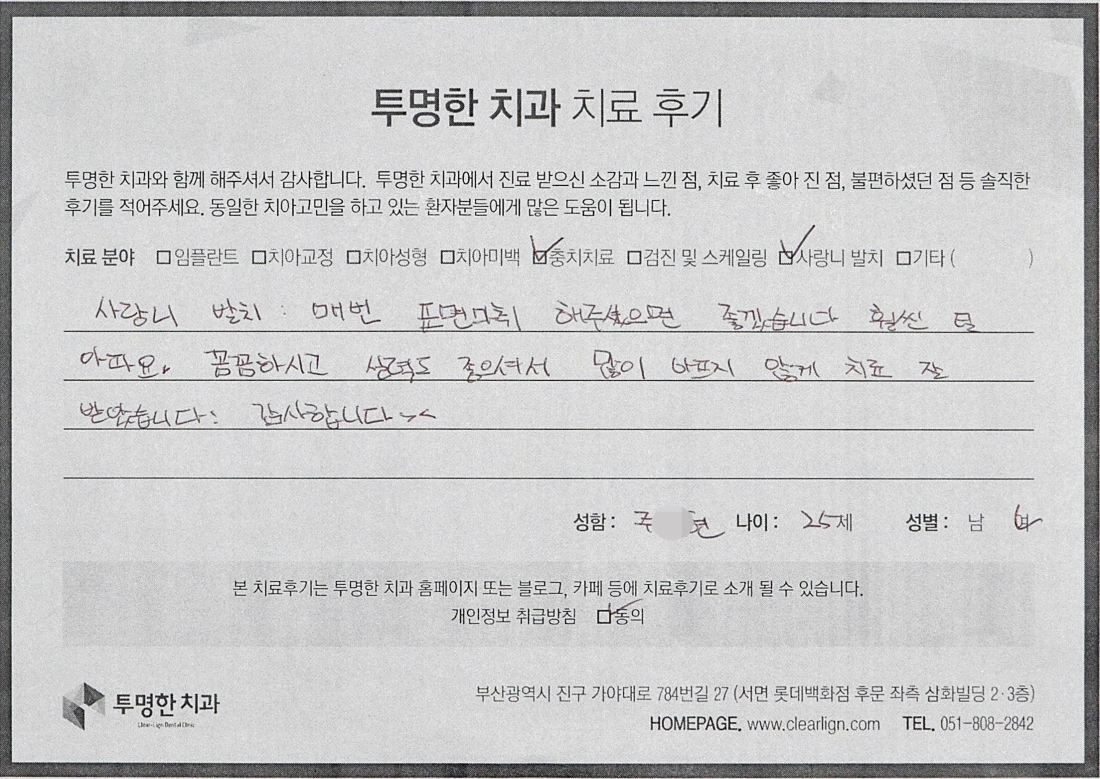 투명한 치과 치료 후기
투명한 치과와 함께 해주셔서 감사합니다. 투명한 치과에서 진료 받으신 소감과 느낀 점, 치료 후 좋아 진 점, 불편하셨던 점 등 솔직한
후기를 적어주세요. 동일한 치아고민을 하고 있는 환자분들에게 많은 도움이 됩니다.
치료 분야 □임플란트 □치아교정 □치아성형 □치아미백 ☑충치치료 □검진 및 스케일링 ☑사랑니 발치 □기타 ( )
사랑니 발치 : 매번 표면마취 해주셨으면 좋겠습니다 훨씬 덜
아파요. 꼼꼼하시고 실력도 좋으셔서 많이 아프지 않게 치료 잘
받았습니다: 감사합니다^^
성함 : 주 현 나이 : 25세 성별 : 남 여
본 치료후기는 투명한 치과 홈페이지 또는 블로그, 카페 등에 치료후기로 소개 될 수 있습니다.
개인정보 취급방침 ☑동의
투명한 치과
Clear-Lign Dental Clinic
부산광역시 진구 가야대로 784번길 27 (서면 롯데백화점 후문 좌측 삼화빌딩 2·3층)
HOMEPAGE. www.clearlign.com TEL. 051-808-2842